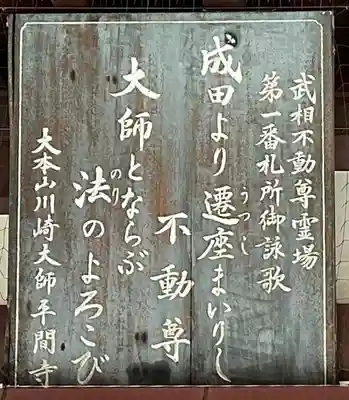 武相不動尊霊場
第一番札所御詠歌
成田より遷座まいりし
うつし
不動尊
大師とならぶ
法のよろこび
のり
大本山川崎大師平間寺